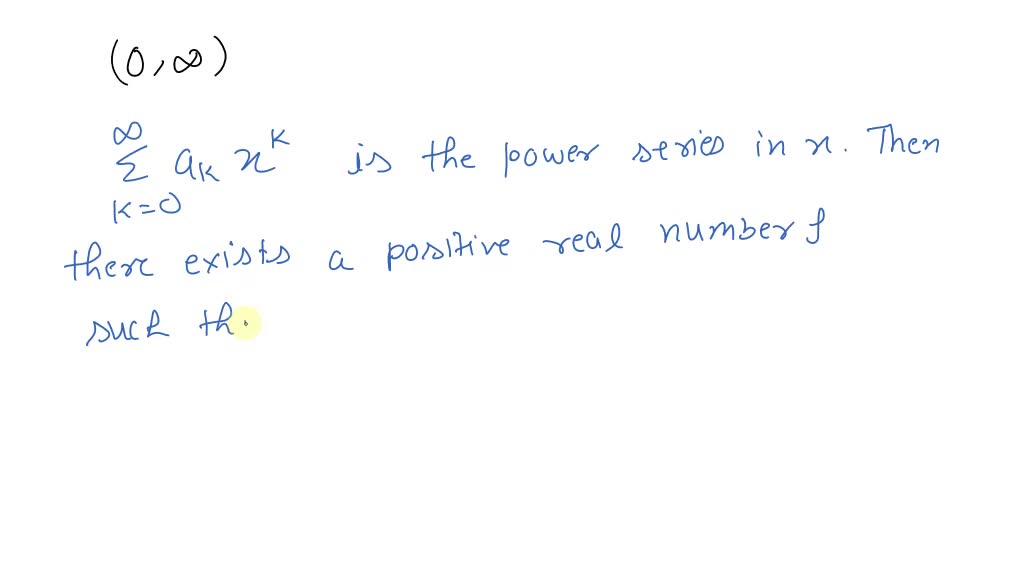 (0, ∞)
∞
Σ a_K x^K is the power series in x. Then
K=0
there exists a positive real number f
such th